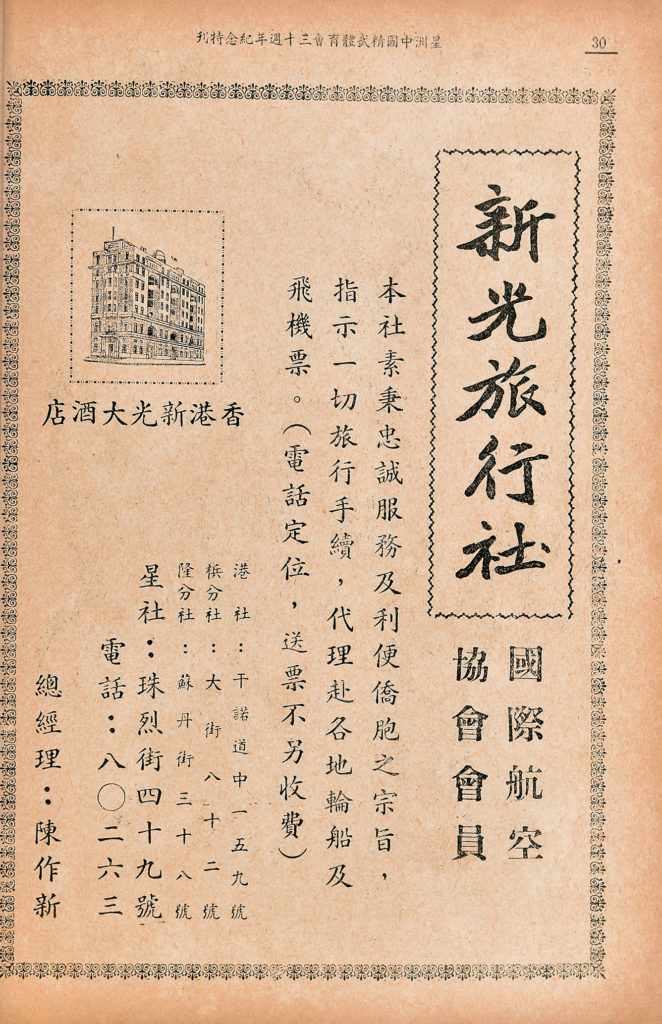 30
星洲中國精武體育會三十週年紀念特刊
新光旅行社
國際航空
協會會員
本社素秉忠誠服務及利便僑胞之宗旨，
指示一切旅行手續，代理赴各地輪船及
飛機票。（電話定位，送票不另收費）
香港新光大酒店
港社：干諾道中一五九號
梹分社：大街八十二號
隆分社：蘇丹街三十八號
星社：珠烈街四十九號
電話：八〇二六三
總經理：陳作新